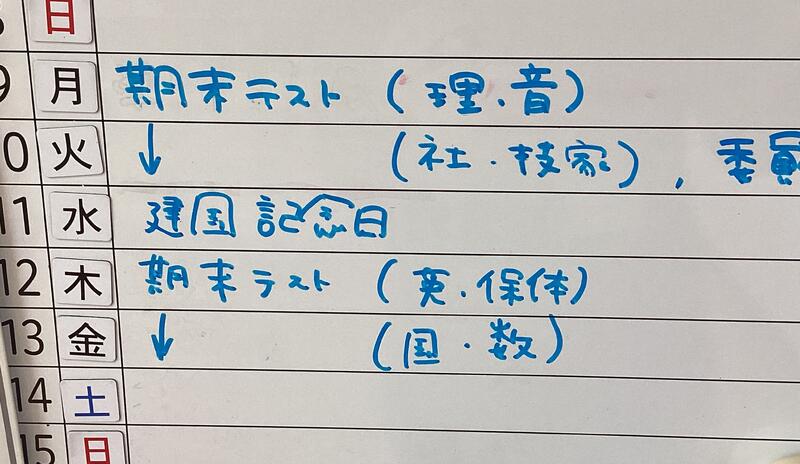 日
9 月 期末テスト (理・音)
0 火 ↓ (社・技家), 委員
11 水 建国記念日
12 木 期末テスト (英・保体)
13 金 ↓ (国・数)
14 土
15 日